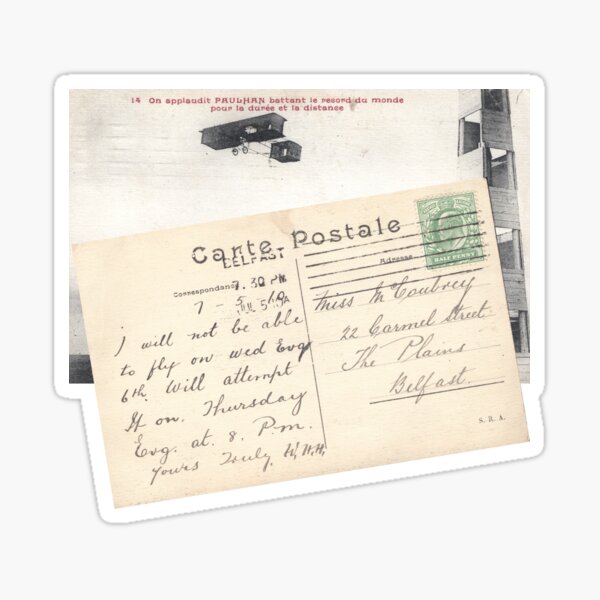 14 On applaudit PAULHAN battant le record du monde
pour la durée et la distance
Carte Postale
BELFAST
Correspondance
7.30 PM
JUL 5 10
Adresse
HALF PENNY
7 - 5 - 10
I will not be able
to fly on wed Evg
6th. Will attempt
It on. Thursday
Evg. at. 8. P.m.
Yours Truly. W.H.H.
Miss McCoubrey
22 Carmel Street
The Plains
Belfast.
S. R. A.